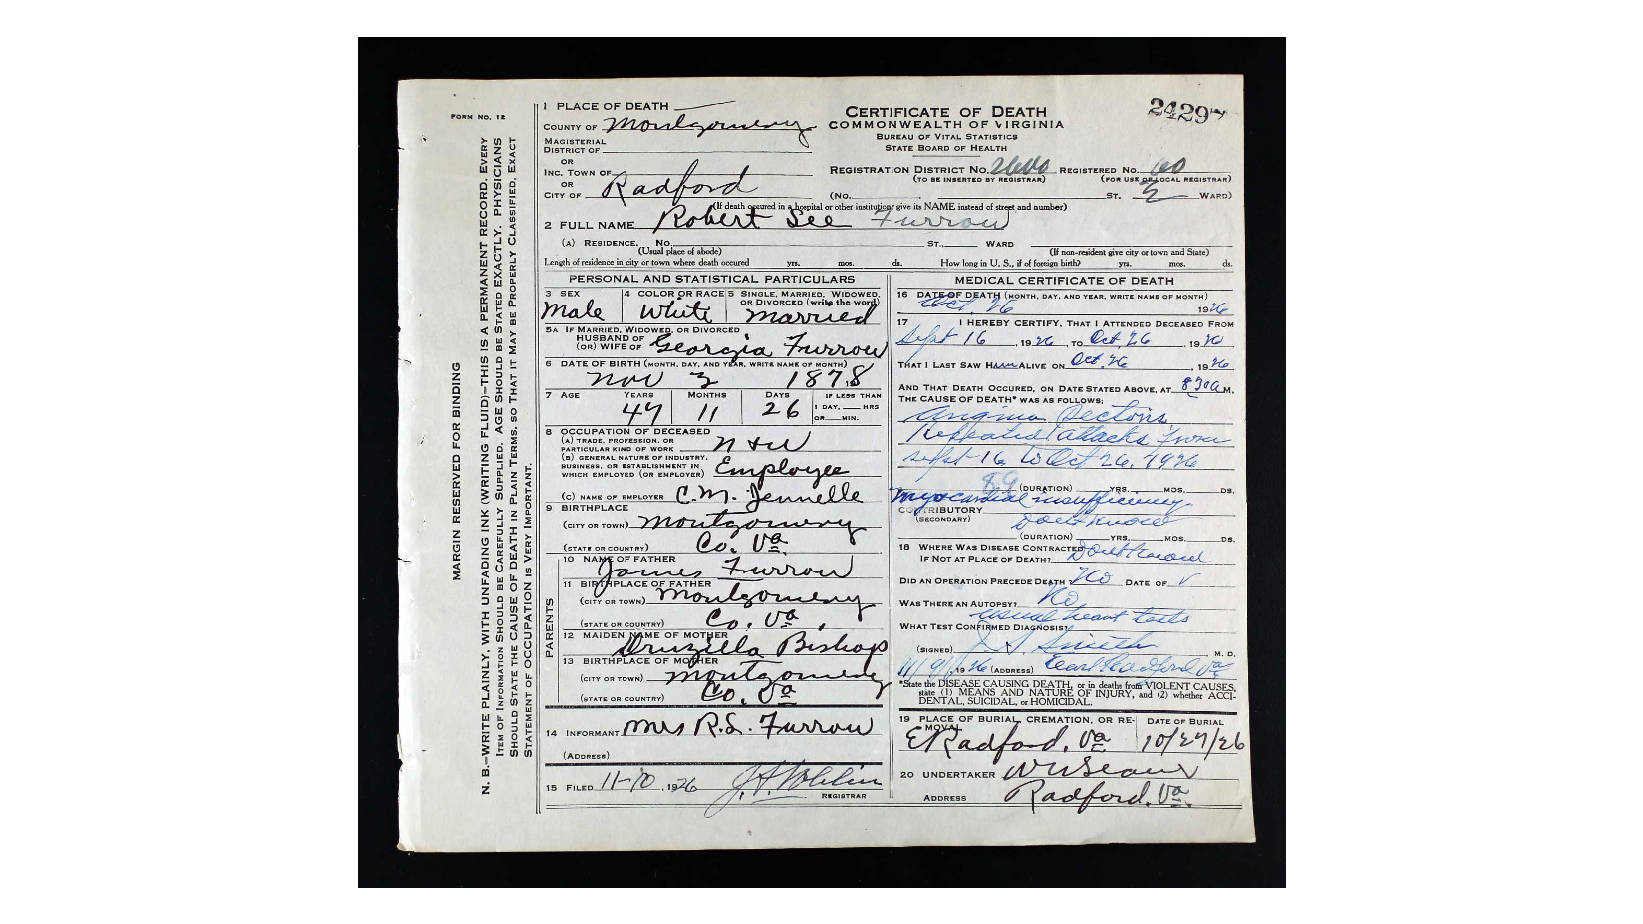 FORM NO. 12
MARGIN RESERVED FOR BINDING
N. B.—WRITE PLAINLY, WITH UNFADING INK (WRITING FLUID)—THIS IS A PERMANENT RECORD. EVERY
ITEM OF INFORMATION SHOULD BE CAREFULLY SUPPLIED. AGE SHOULD BE STATED EXACTLY. PHYSICIANS
SHOULD STATE THE CAUSE OF DEATH IN PLAIN TERMS, SO THAT IT MAY BE PROPERLY CLASSIFIED. EXACT
STATEMENT OF OCCUPATION IS VERY IMPORTANT.
1 PLACE OF DEATH
COUNTY OF Montgomery
MAGISTERIAL
DISTRICT OF
OR
INC. TOWN OF
OR
CITY OF Radford
CERTIFICATE OF DEATH
COMMONWEALTH OF VIRGINIA
BUREAU OF VITAL STATISTICS
STATE BOARD OF HEALTH
2429
REGISTRATION DISTRICT NO. REGISTERED NO. 60
(TO BE INSERTED BY REGISTRAR) (FOR USE OF LOCAL REGISTRAR)
(NO. ST. WARD)
(If death occured in a hospital or other institution give its NAME instead of street and number)
2 FULL NAME Robert Lee Furrow
(A) RESIDENCE. No. ST., WARD
(Usual place of abode) (If non-resident give city or town and State)
Length of residence in city or town where death occured yrs. mos. ds. How long in U. S., if of foreign birth? yrs. mos. ds.
PERSONAL AND STATISTICAL PARTICULARS
3 SEX Male
4 COLOR OR RACE White
5 SINGLE, MARRIED, WIDOWED,
OR DIVORCED (write the word)
Married
5A IF MARRIED, WIDOWED, OR DIVORCED
HUSBAND OF
(OR) WIFE OF Georgia Furrow
6 DATE OF BIRTH (MONTH, DAY, AND YEAR, WRITE NAME OF MONTH)
Nov 3 1878
7 AGE YEARS MONTHS DAYS IF LESS THAN
47 11 26 1 DAY, HRS
OR MIN.
8 OCCUPATION OF DECEASED
(A) TRADE, PROFESSION, OR
PARTICULAR KIND OF WORK N & W
(B) GENERAL NATURE OF INDUSTRY,
BUSINESS, OR ESTABLISHMENT IN
WHICH EMPLOYED (OR EMPLOYER) Employee
(C) NAME OF EMPLOYER C.M. Jennelle
9 BIRTHPLACE
(CITY OR TOWN) Montgomery
(STATE OR COUNTRY) Co. Va.
PARENTS
10 NAME OF FATHER
James Furrow
11 BIRTHPLACE OF FATHER
(CITY OR TOWN) Montgomery
(STATE OR COUNTRY) Co. Va.
12 MAIDEN NAME OF MOTHER
Druzilla Bishop
13 BIRTHPLACE OF MOTHER
(CITY OR TOWN) Montgomery
(STATE OR COUNTRY) Co. Va
14 INFORMANT Mrs R.L. Furrow
(ADDRESS)
15 FILED 11-10, 1926
REGISTRAR
MEDICAL CERTIFICATE OF DEATH
16 DATE OF DEATH (MONTH, DAY, AND YEAR, WRITE NAME OF MONTH)
Oct. 26 1926
17 I HEREBY CERTIFY, THAT I ATTENDED DECEASED FROM
Sept 16, 1926, TO Oct 26, 1926
THAT I LAST SAW Him ALIVE ON Oct. 26, 1926
AND THAT DEATH OCCURED, ON DATE STATED ABOVE, AT 830a M.
THE CAUSE OF DEATH* WAS AS FOLLOWS:
Angina Pectoris
Repeated attacks from
Sept 16 to Oct 26, 1926
89
(DURATION) YRS. MOS. DS.
myocardial insufficiency
CONTRIBUTORY
(SECONDARY) Don't know
(DURATION) YRS. MOS. DS.
18 WHERE WAS DISEASE CONTRACTED
IF NOT AT PLACE OF DEATH? Dont know
DID AN OPERATION PRECEDE DEATH? No DATE OF
WAS THERE AN AUTOPSY? No
usual heart tests
WHAT TEST CONFIRMED DIAGNOSIS?
(SIGNED) Smith M. D.
11/9/, 1926 (ADDRESS) East Radford Va
*State the DISEASE CAUSING DEATH, or in deaths from VIOLENT CAUSES,
state (1) MEANS AND NATURE OF INJURY, and (2) whether ACCI-
DENTAL, SUICIDAL, or HOMICIDAL.
19 PLACE OF BURIAL, CREMATION, OR RE-
MOVAL
E Radford, Va
DATE OF BURIAL
10/27/26
20 UNDERTAKER
ADDRESS Radford, Va.